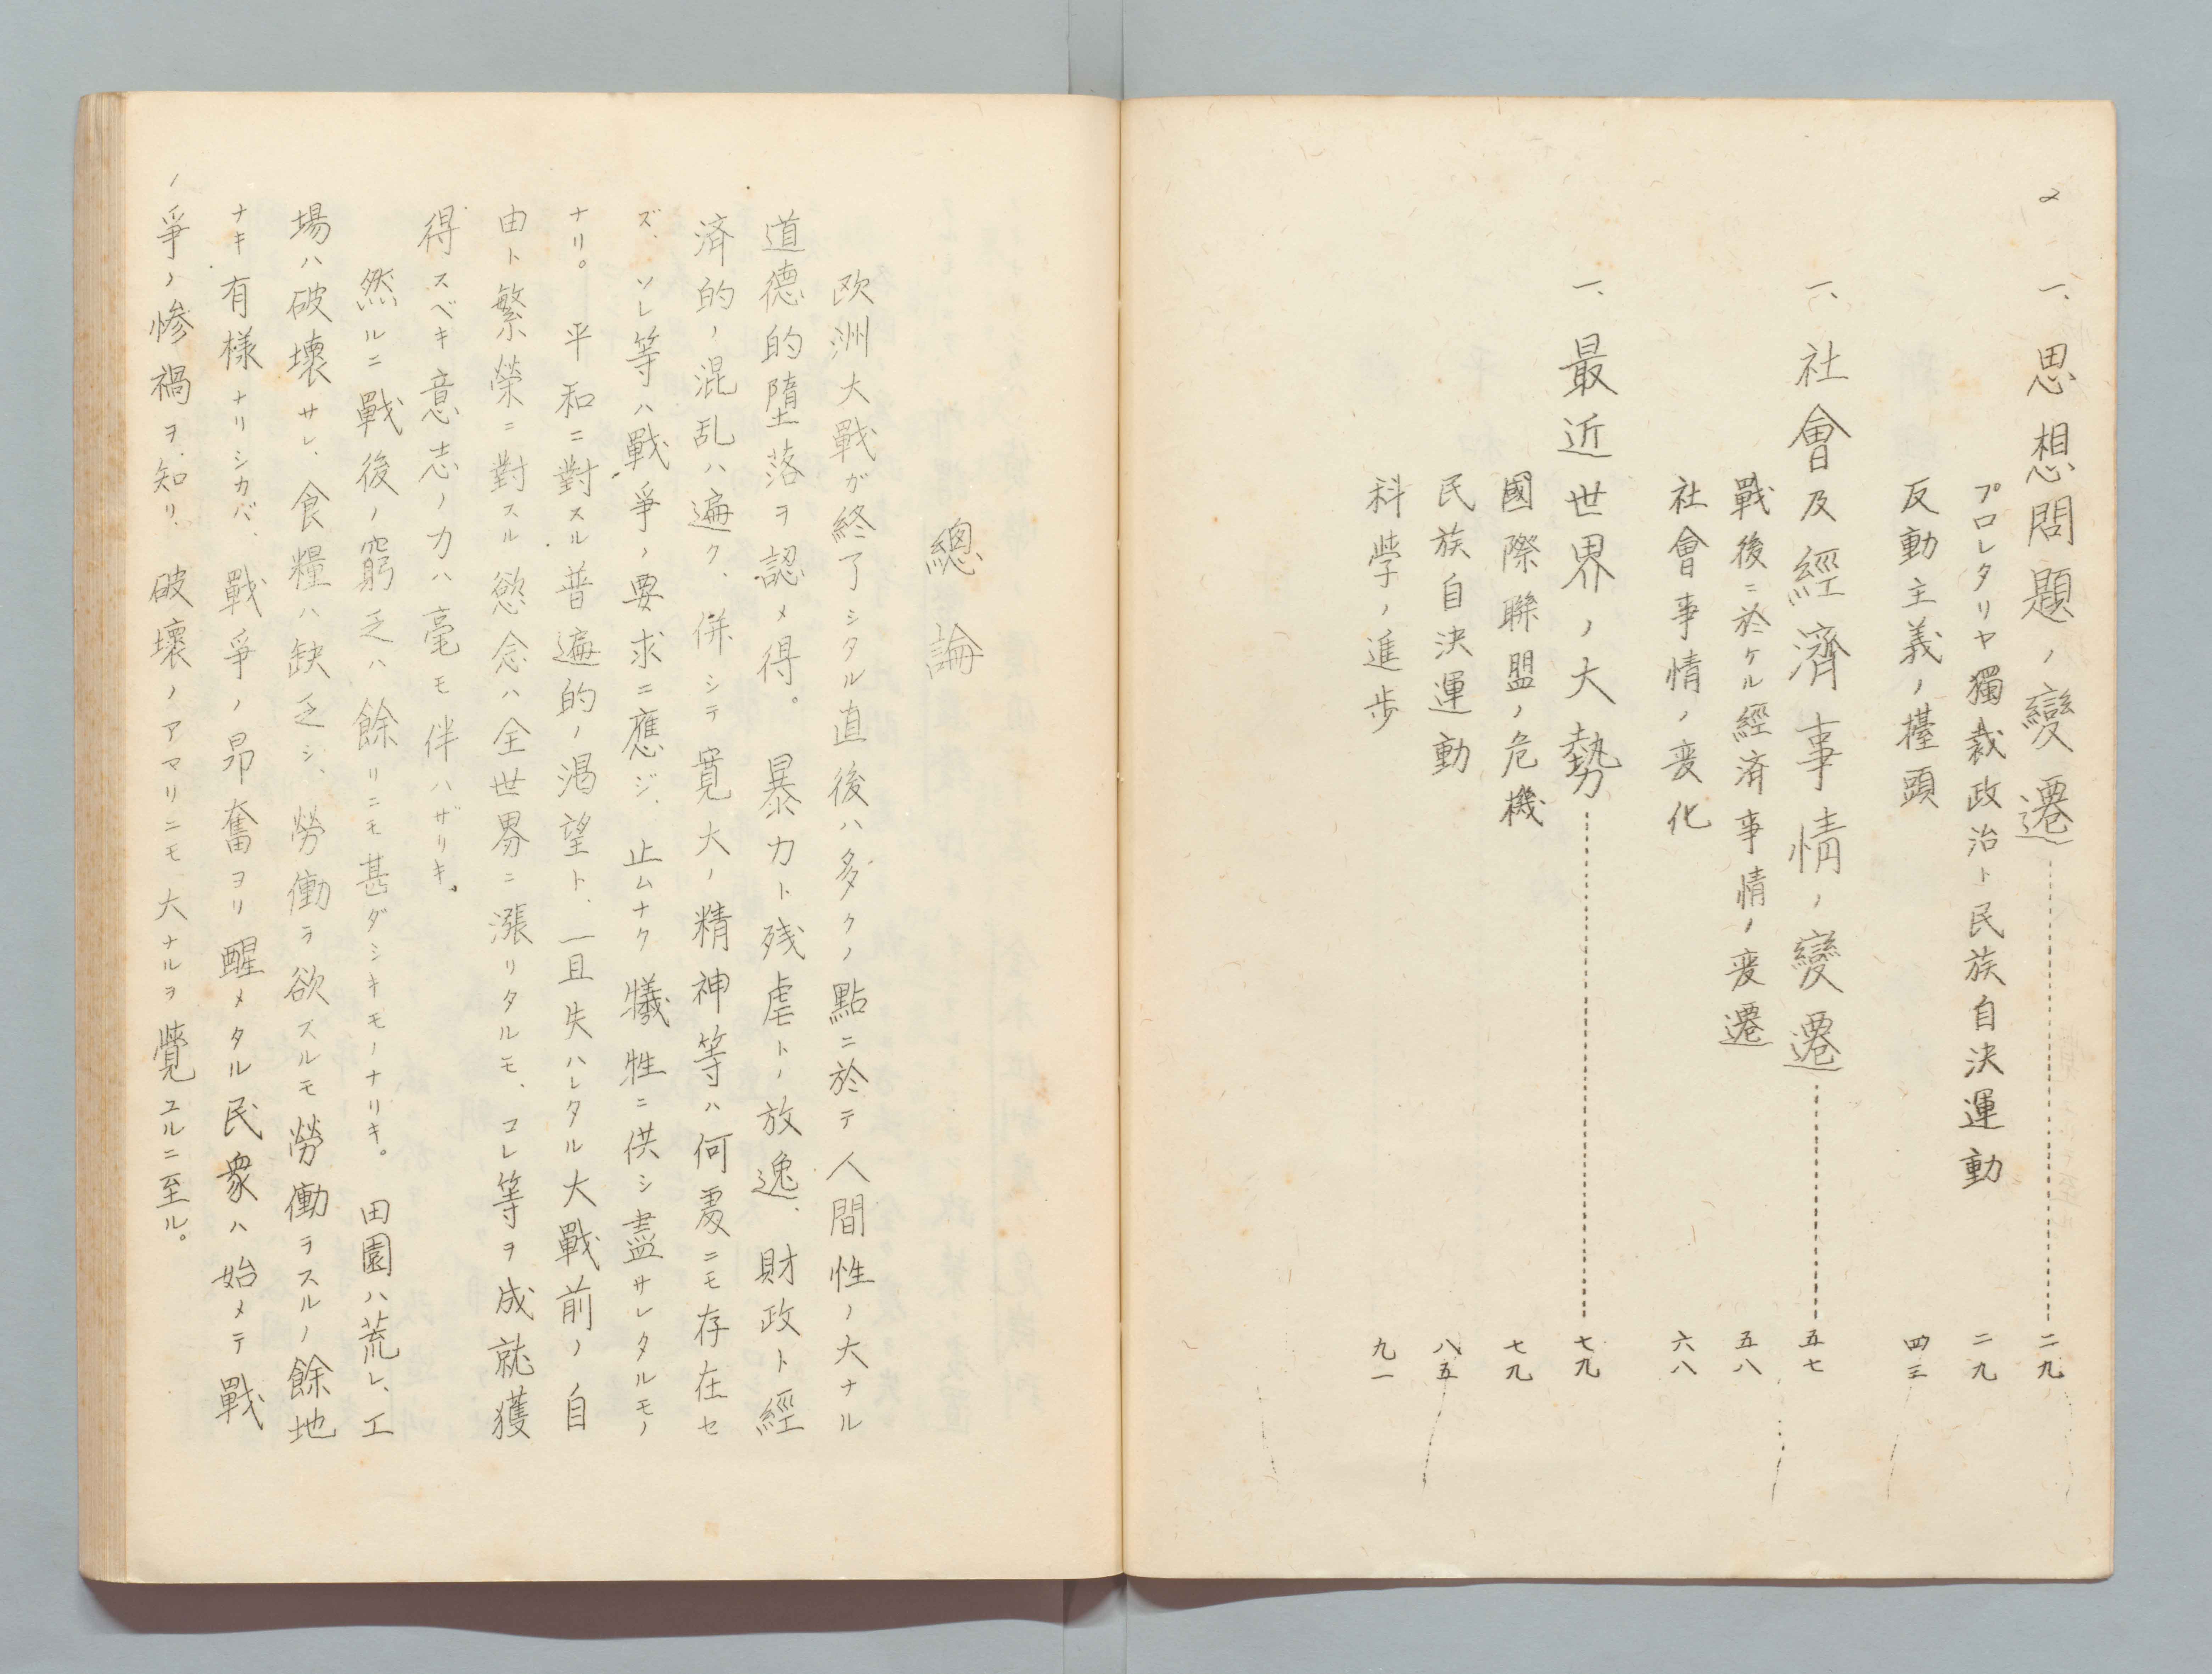 2
一、思想問題ノ變遷 二九
プロレタリヤ獨裁政治ト民族自決運動 二九
反動主義ノ擡頭 四三
一、社會及經濟事情ノ變遷 五七
戰後ニ於ケル經済事情ノ変遷 五八
社會事情ノ変化 六八
一、最近世界ノ大勢 七九
國際聯盟ノ危機 七九
民族自決運動 八五
科学ノ進歩 九一
總論
欧洲大戰ガ終了シタル直後ハ多クノ點ニ於テ人間性ノ大ナル
道德的墮落ヲ認メ得。暴力ト残虐ト放逸、財政ト經
済的ノ混乱ハ遍ク、併シテ寛大ノ精神等ハ何処ニモ存在セ
ズ、ソレ等ハ戰爭ノ要求ニ應ジ、止ムナク犠牲ニ供シ盡サレタルモノ
ナリ。平和ニ對スル普遍的ノ渇望ト、一旦失ハレタル大戰前ノ自
由ト繁榮ニ對スル慾念ハ全世界ニ漲リタルモ、コレ等ヲ成就獲
得スベキ意志ノ力ハ毫モ伴ハザリキ。
然ルニ戰後ノ窮乏ハ餘リニモ甚ダシキモノナリキ。田園ハ荒レ、工
場ハ破壊サレ、食糧ハ缺乏シ、勞働ヲ欲スルモ勞働ヲスルノ餘地
ナキ有様ナリシカバ、戰爭ノ昂奮ヨリ醒メタル民衆ハ始メテ戰
ノ爭ノ惨禍ヲ知リ、破壞ノアマリニモ大ナルヲ覺ユルニ至ル。